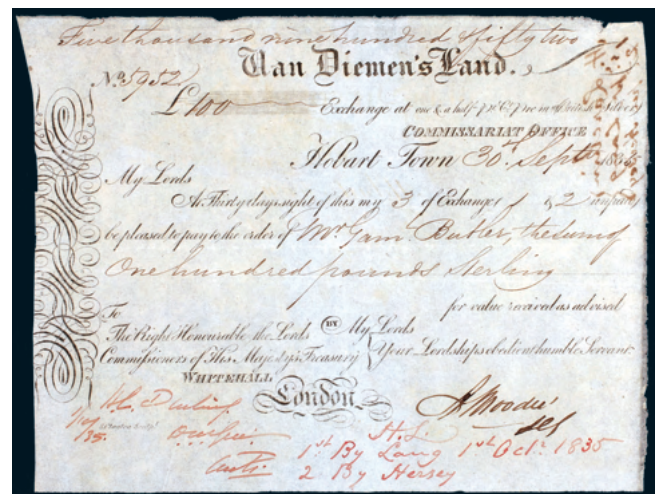 Five thousand nine hundred & fifty two
Van Diemen's Land.
No. 5952
£100 Exchange at one & a half
COMMISSARIAT OFFICE
Hobart Town 30th Septr 1835
My Lords
At Thirty days sight of this my 3 of Exchange 1 & 2 unpaid
be pleased to pay to the order of Mr Gam. Butler, the sum of
One hundred pounds Sterling
for value received as advised
To
The Right Honourable the Lords BY My Lords
Commissioners of His Majesty's Treasury Your Lordships obedient humble Servant
WHITEHALL
London.
A Moodie
H.S.
1st By Lang 1st Octr 1835
2 By Hersey